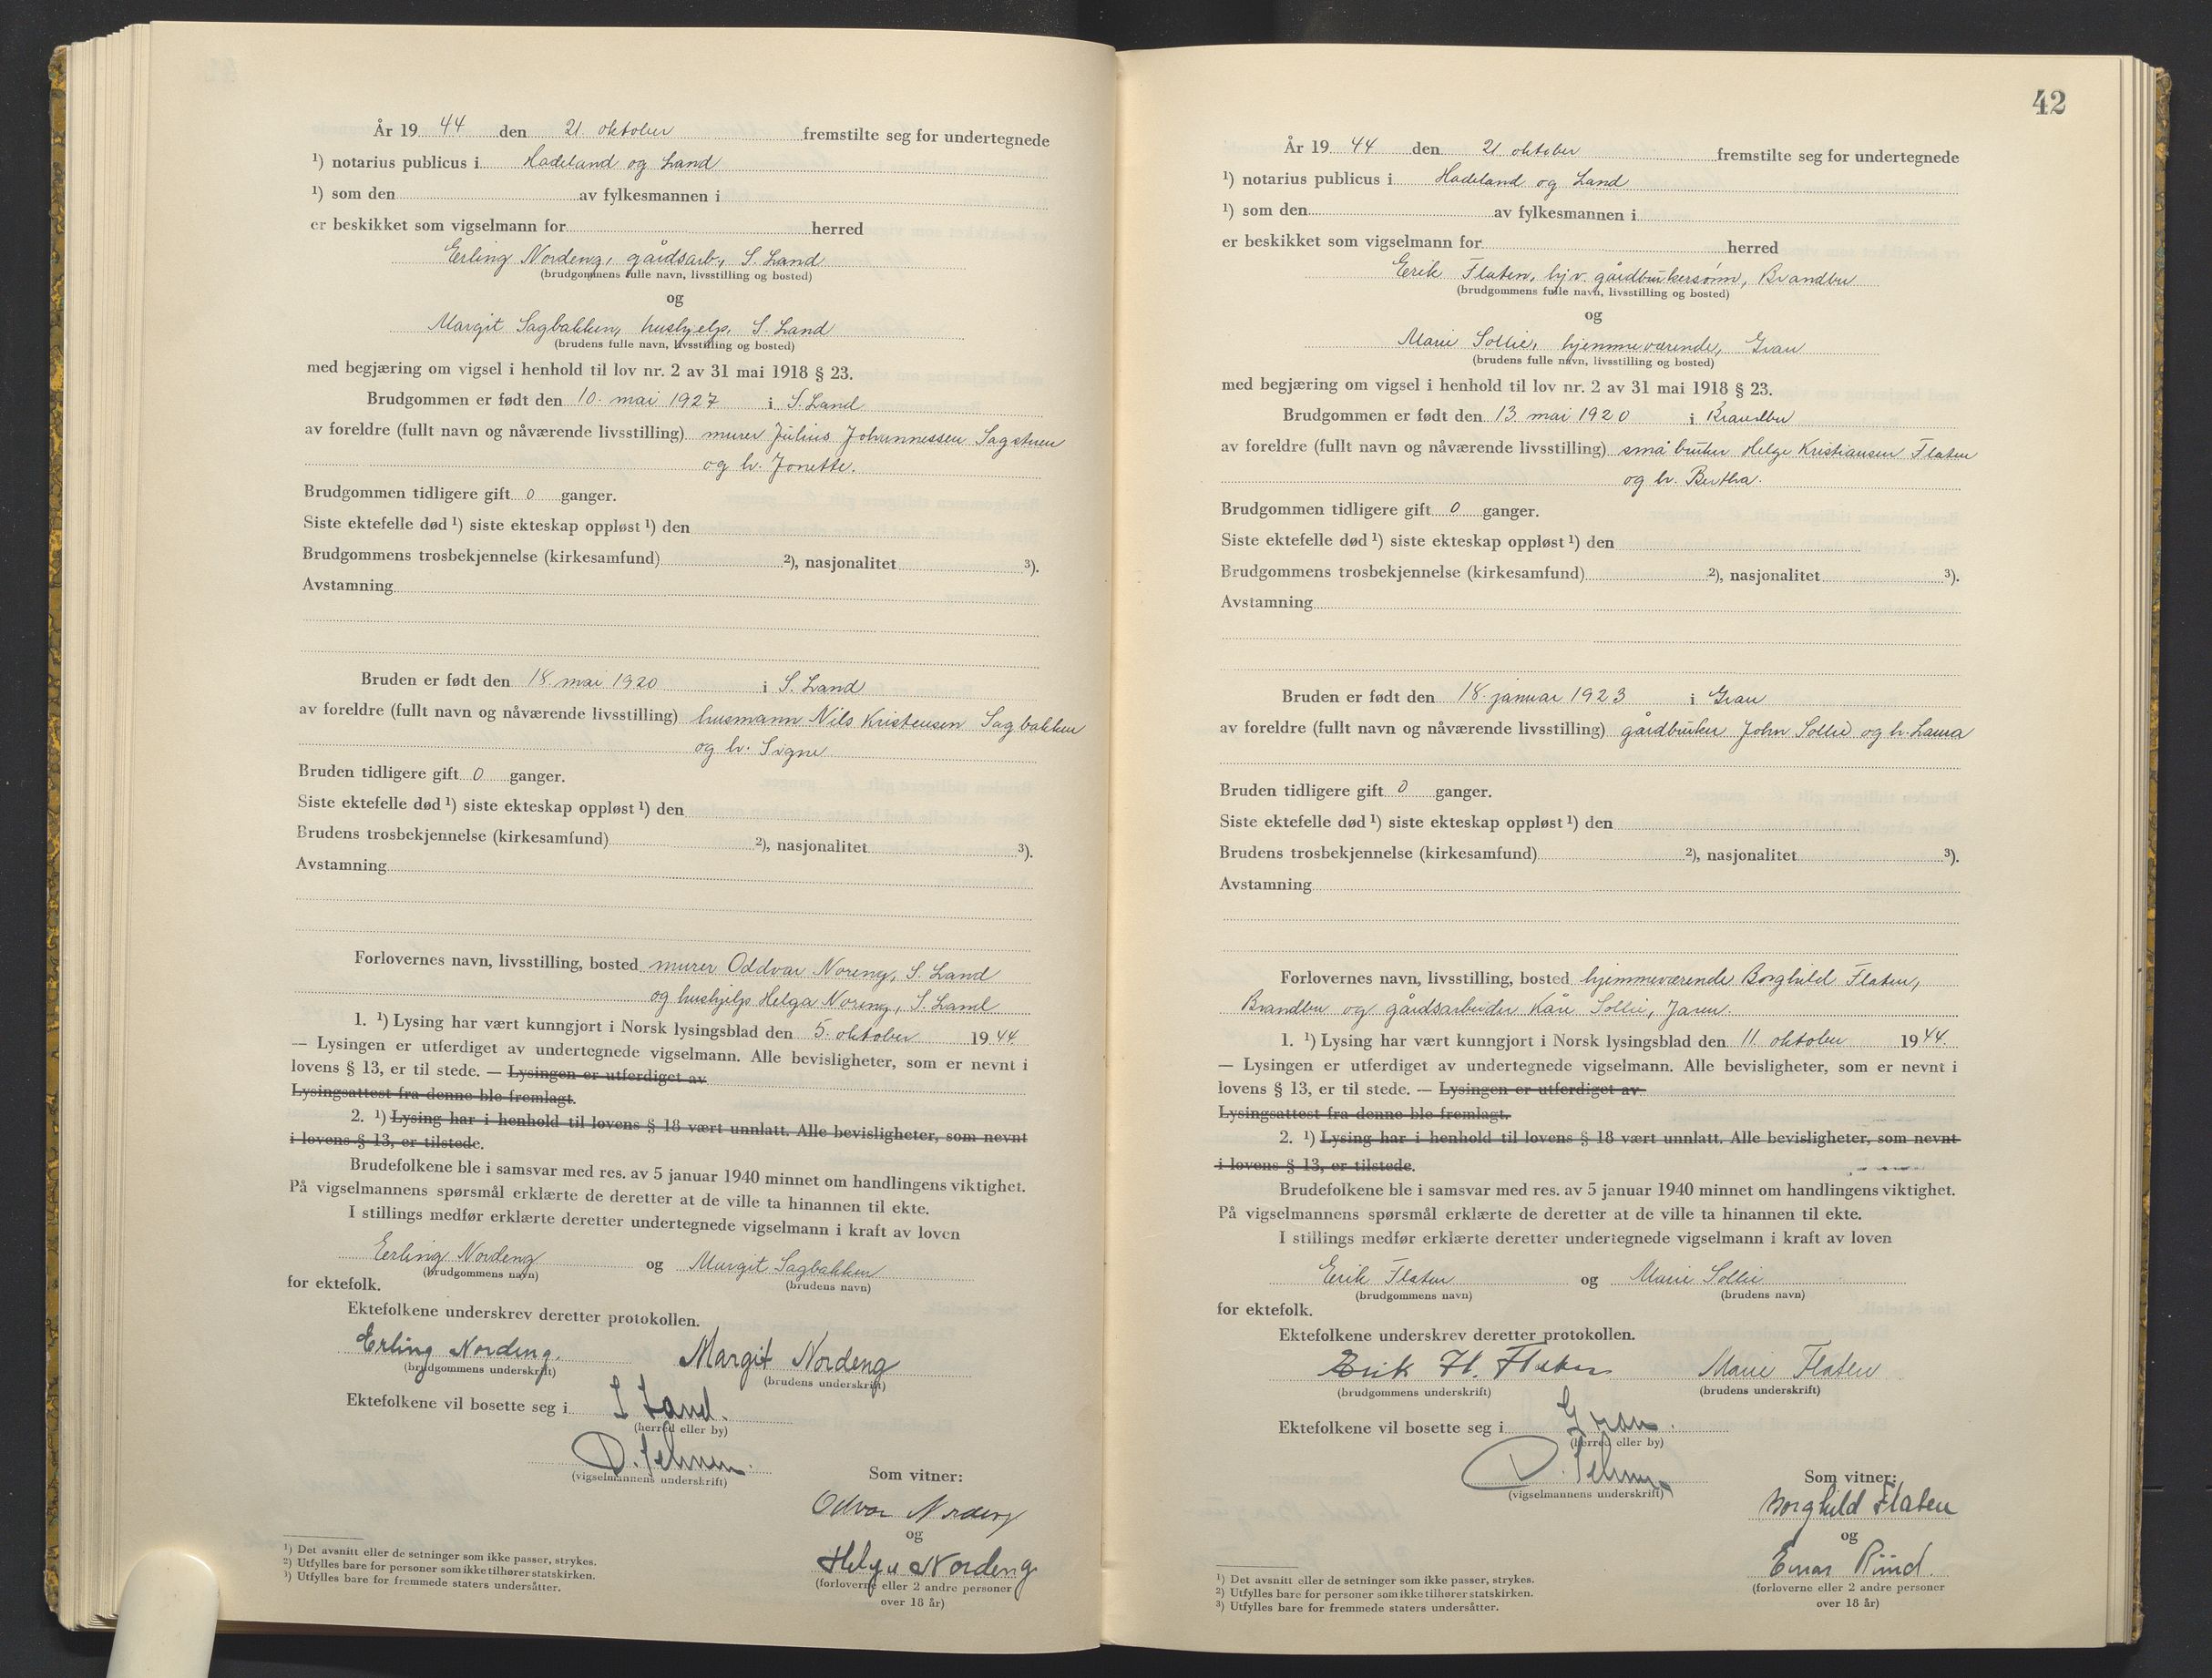 År 19 44 den 21 oktober fremstilte seg for undertegnede
¹) notarius publicus i Hadeland og Land
¹) som den av fylkesmannen i
er beskikket som vigselmann for herred
Erling Nordeng, gårdsarb., S. Land
(brudgommens fulle navn, livsstilling og bosted)
og
Margit Sagbakken, hushjelp, S. Land
(brudens fulle navn, livsstilling og bosted)
med begjæring om vigsel i henhold til lov nr. 2 av 31 mai 1918 § 23.
Brudgommen er født den 10. mai 1927 i S. Land
av foreldre (fullt navn og nåværende livsstilling) murer Julius Johannessen Sagstuen
og h. Jonette.
Brudgommen tidligere gift 0 ganger.
Siste ektefelle død ¹) siste ekteskap oppløst ¹) den
Brudgommens trosbekjennelse (kirkesamfund) ²), nasjonalitet ³).
Avstamning
Bruden er født den 18. mai 1920 i S. Land
av foreldre (fullt navn og nåværende livsstilling) husmann Nils Kristensen Sagbakken
og h. Signe
Bruden tidligere gift 0 ganger.
Siste ektefelle død ¹) siste ekteskap oppløst ¹) den
Brudens trosbekjennelse (kirkesamfund) ²), nasjonalitet ³).
Avstamning
Forlovernes navn, livsstilling, bosted murer Oddvar Noreng, S. Land
og hushjelp Helga Noreng, S. Land
1. ¹) Lysing har vært kunngjort i Norsk lysingsblad den 5. oktober 19 44
— Lysingen er utferdiget av undertegnede vigselmann. Alle bevisligheter, som er nevnt i
lovens § 13, er til stede. — Lysingen er utferdiget av
Lysingsattest fra denne ble fremlagt.
2. ¹) Lysing har i henhold til lovens § 18 vært unnlatt. Alle bevisligheter, som nevnt
i lovens § 13, er tilstede.
Brudefolkene ble i samsvar med res. av 5 januar 1940 minnet om handlingens viktighet.
På vigselmannens spørsmål erklærte de deretter at de ville ta hinannen til ekte.
I stillings medfør erklærte deretter undertegnede vigselmann i kraft av loven
Erling Nordeng og Margit Sagbakken
(brudgommens navn) (brudens navn)
for ektefolk.
Ektefolkene underskrev deretter protokollen.
Erling Nordeng. Margit Nordeng
(brudgommens underskrift) (brudens underskrift)
Ektefolkene vil bosette seg i S Land.
(herred eller by)
D.
(vigselmannens underskrift)
Som vitner:
Odvar Nordeng
og
Helga Nordeng
(forloverne eller 2 andre personer
over 18 år)
¹) Det avsnitt eller de setninger som ikke passer, strykes.
²) Utfylles bare for personer som ikke tilhører statskirken.
³) Utfylles bare for fremmede staters undersåtter.
42
År 19 44 den 21 oktober fremstilte seg for undertegnede
¹) notarius publicus i Hadeland og Land
¹) som den av fylkesmannen i
er beskikket som vigselmann for herred
Erik Flaten, hjv. gårdbrukersønn, Brandbu
(brudgommens fulle navn, livsstilling og bosted)
og
Marie Sollie, hjemmeværende, Gran
(brudens fulle navn, livsstilling og bosted)
med begjæring om vigsel i henhold til lov nr. 2 av 31 mai 1918 § 23.
Brudgommen er født den 13 mai 1920 i Brandbu
av foreldre (fullt navn og nåværende livsstilling) småbruker Helge Kristiansen Flaten
og h. Bertha.
Brudgommen tidligere gift 0 ganger.
Siste ektefelle død ¹) siste ekteskap oppløst ¹) den
Brudgommens trosbekjennelse (kirkesamfund) ²), nasjonalitet ³).
Avstamning
Bruden er født den 18. januar 1923 i Gran
av foreldre (fullt navn og nåværende livsstilling) gårdbruker John Sollie og h. Laura
Bruden tidligere gift 0 ganger.
Siste ektefelle død ¹) siste ekteskap oppløst ¹) den
Brudens trosbekjennelse (kirkesamfund) ²), nasjonalitet ³).
Avstamning
Forlovernes navn, livsstilling, bosted hjemmeværende Borghild Flaten,
Brandbu og gårdsarbeider Kåre Sollie, Jaren.
1. ¹) Lysing har vært kunngjort i Norsk lysingsblad den 11. oktober 19 44.
— Lysingen er utferdiget av undertegnede vigselmann. Alle bevisligheter, som er nevnt i
lovens § 13, er til stede. — Lysingen er utferdiget av
Lysingsattest fra denne ble fremlagt.
2. ¹) Lysing har i henhold til lovens § 18 vært unnlatt. Alle bevisligheter, som nevnt
i lovens § 13, er tilstede.
Brudefolkene ble i samsvar med res. av 5 januar 1940 minnet om handlingens viktighet.
På vigselmannens spørsmål erklærte de deretter at de ville ta hinannen til ekte.
I stillings medfør erklærte deretter undertegnede vigselmann i kraft av loven
Erik Flaten og Marie Sollie
(brudgommens navn) (brudens navn)
for ektefolk.
Ektefolkene underskrev deretter protokollen.
Erik H. Flaten Marie Flaten
(brudgommens underskrift) (brudens underskrift)
Ektefolkene vil bosette seg i Gran.
(herred eller by)
D.
(vigselmannens underskrift)
Som vitner:
Borghild Flaten
og
Einar Ruud.
(forloverne eller 2 andre personer
over 18 år)
¹) Det avsnitt eller de setninger som ikke passer, strykes.
²) Utfylles bare for personer som ikke tilhører statskirken.
³) Utfylles bare for fremmede staters undersåtter.